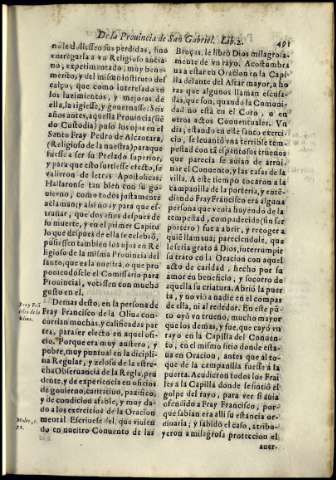 De la Prouincia de San Gabriel. Lib. 2. 491
no le diessen sus perdidas, sino
entregarla a vn Religioso ancia-
no, experimentado, muy bene-
merito, y del mismo instituto des-
calço, que como interesado en
los lucimientos, y mejoras de
ella, la rigiesse, y gouernasse: Seis
años antes, aquella Prouincia (siẽ-
do Custodia) puso los ojos en el
Santo Fray Pedro de Alcantara,
(Religioso de la nuestra) para que
fuesse a ser su Prelado superior,
y para que esto surtiesse efecto, se
valieron de letras Apostolicas:
Hallaronse tan bien con su go-
uierno, como todos justamente
aclaman: y assi no ay para que es-
trañar, que dos años despues de
su muerte, y en el primer Capitu
lo que despues de ella se celebrò,
pusiessen tambien los ojos en Re-
ligioso de la misma Prouincia del
santo, que era la nuestra, o que pro
poniendosele el Comissario para
Prouincial, viniessen con mucho
gusto en el.
Demas desto, en la persona de
Fray Francisco de la Oliua con-
currian muchas, y calificadas par
tes, para ser electo en aquel oficio.
Porque era muy austero, y
pobre, muy puntual en la discipli-
na Regular, y zeloso de la estre-
cha Obseruancia de la Regla, pru
dente, y de experiencia en oficios
de gouierno, caritatiuo, pacifico,
y de condicion afable, y muy da-
do a los exercicios de la Oracion
mental. Escriuese del, que viuien
do en nuestro Conuento de las
Broças, le librò Dios milagrosa-
mente de vn rayo. Acostumbra
ua a estar en Oracion en la Capi-
lla delante del Altar mayor, a ho-
ras que llamamos alli escusa-
das, que son, quando la Comuni-
dad no està en el Coro, o en
otros actos Conuentuales. Vn
dia, estando en este santo exerci-
cio, se leuantò vna terrible tem-
pestad con tã espantosos truenos
que parecia se auian de arrui-
nar el Conuento, y las casas de la
villa. A este tiempo tocaron a la
campanilla de la porteria, y enten-
diendo Fray Francisco era alguna
persona que venia huyendo de la
tempestad, compadecido (sin ser
portero) fue a abrir, y recoger a
quiẽ llamaua; pareciendole, que
le seria grato à Dios, interrumpir
su trato en la Oracion con aquel
acto de caridad, hecho por su
amor en beneficio, y socorro de
aquella su criatura. Abriò la puer-
ta, y no viò a nadie en el compas
de ella, ni al rededor. En este pũ-
to oyò vn trueno, mucho mayor
que los demas, y fue, que cayò vn
rayo en la Capilla del Conuen-
to, en el mismo sitio donde esta-
ua en Oracion, antes que al to-
que de la campanilla fuesse a la
puerta. Acudieron todos los Frai
les a la Capilla donde se sintiò el
golpe del rayo, para ver si auia
ofendido a Fray Francisco, por-
que sabian era alli su estancia or-
dinaria; y sabido el caso, atribu-
yeron a milagrosa proteccion el
auer-